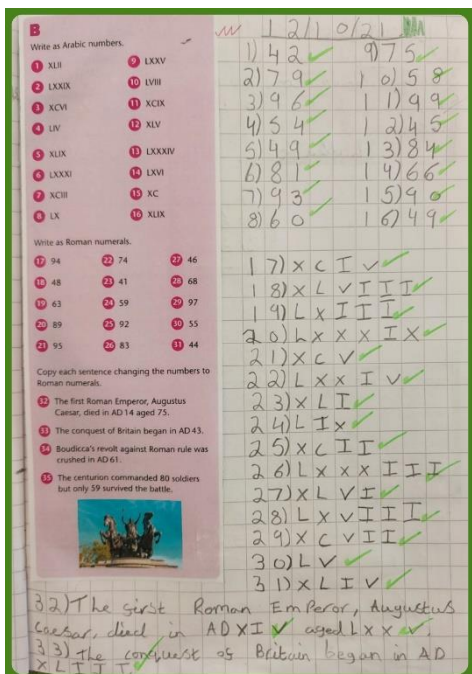 B
Write as Arabic numbers.
1 XLII
2 LXXIX
3 XCVI
4 LIV
5 XLIX
6 LXXXI
7 XCIII
8 LX
9 LXXV
10 LVIII
11 XCIX
12 XLV
13 LXXXIV
14 LXVI
15 XC
16 XLIX
Write as Roman numerals.
17 94
18 48
19 63
20 89
21 95
22 74
23 41
24 59
25 92
26 83
27 46
28 68
29 97
30 55
31 44
Copy each sentence changing the numbers to
Roman numerals.
32 The first Roman Emperor, Augustus
Caesar, died in AD 14 aged 75.
33 The conquest of Britain began in AD 43.
34 Boudicca's revolt against Roman rule was
crushed in AD 61.
35 The centurion commanded 80 soldiers
but only 59 survived the battle.
12/10/21
1) 42
2) 79
3) 96
4) 54
5) 49
6) 81
7) 93
8) 60
9) 75
10) 58
11) 99
12) 45
13) 84
14) 66
15) 90
16) 49
17) XCIV
18) XLVIII
19) LXIII
20) LXXXIX
21) XCV
22) LXXIV
23) XLI
24) LIX
25) XCII
26) LXXXIII
27) XLVI
28) LXVIII
29) XCVII
30) LV
31) XLIV
32) The first Roman Emperor, Augustus
Caesar, died in AD XIV aged LXXV.
33) The conquest of Britain began in AD
XLIII.